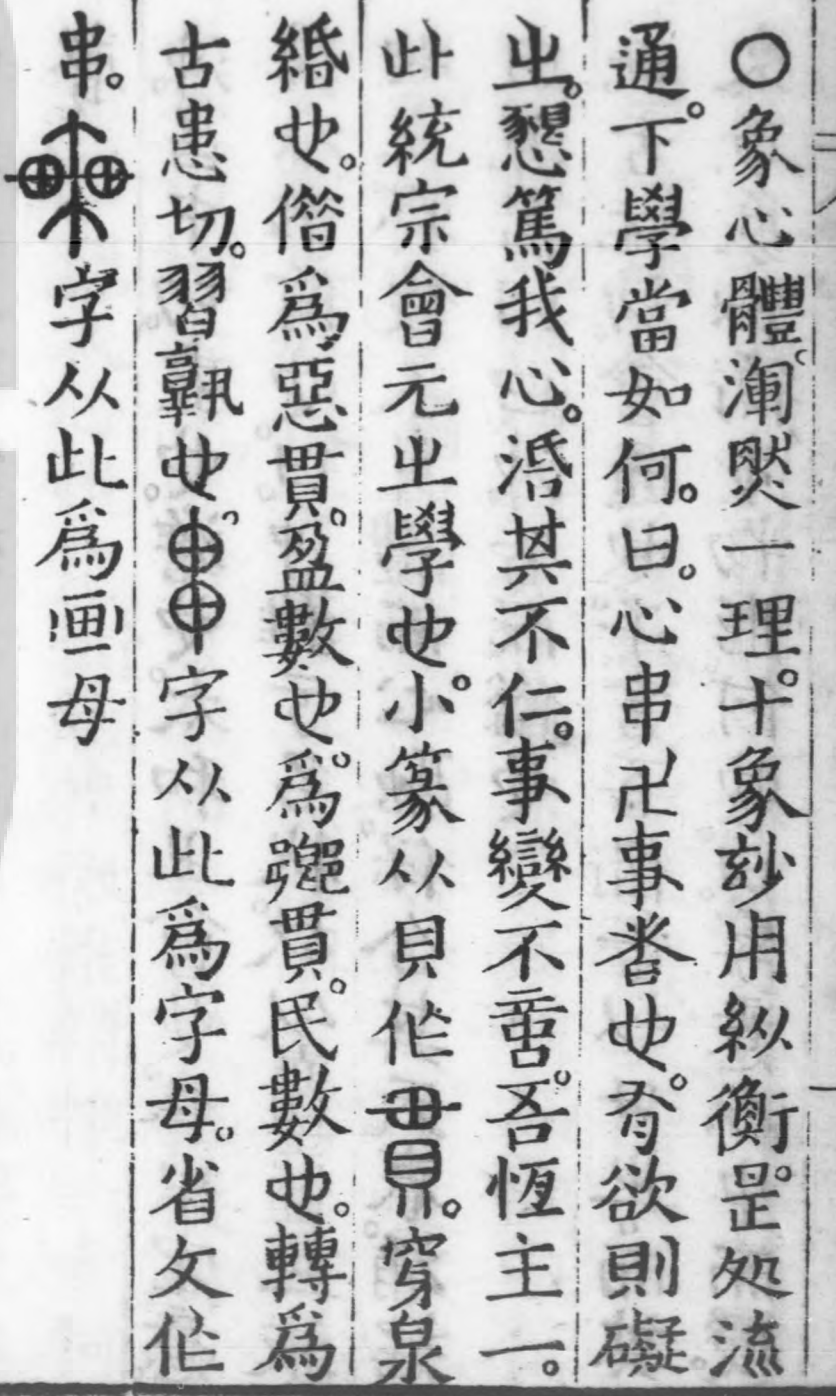 ○象心體。渾㷼一理。十象玅用縱衡。昰処流
通。下學當如何。曰。心串卍事者也。有欲則礙
㞢。懇篤我心。涽其不仁。事變不啻。吾恆主一。
此統宗會元㞢學也。小篆从貝作貫。穿泉
緡也。偺爲惡貫。盈數也。爲踁貫。民數也。轉爲
古患切。習𩏑也。字从此爲字母。省文作
串。字从此爲画母